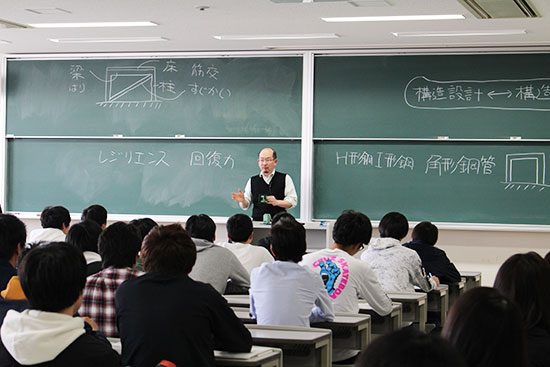 梁
はり
床 筋交
柱 すじかい
レジリエンス 回復力
構造設計 ←→ 構造
H形鋼 I形鋼 角形鋼管